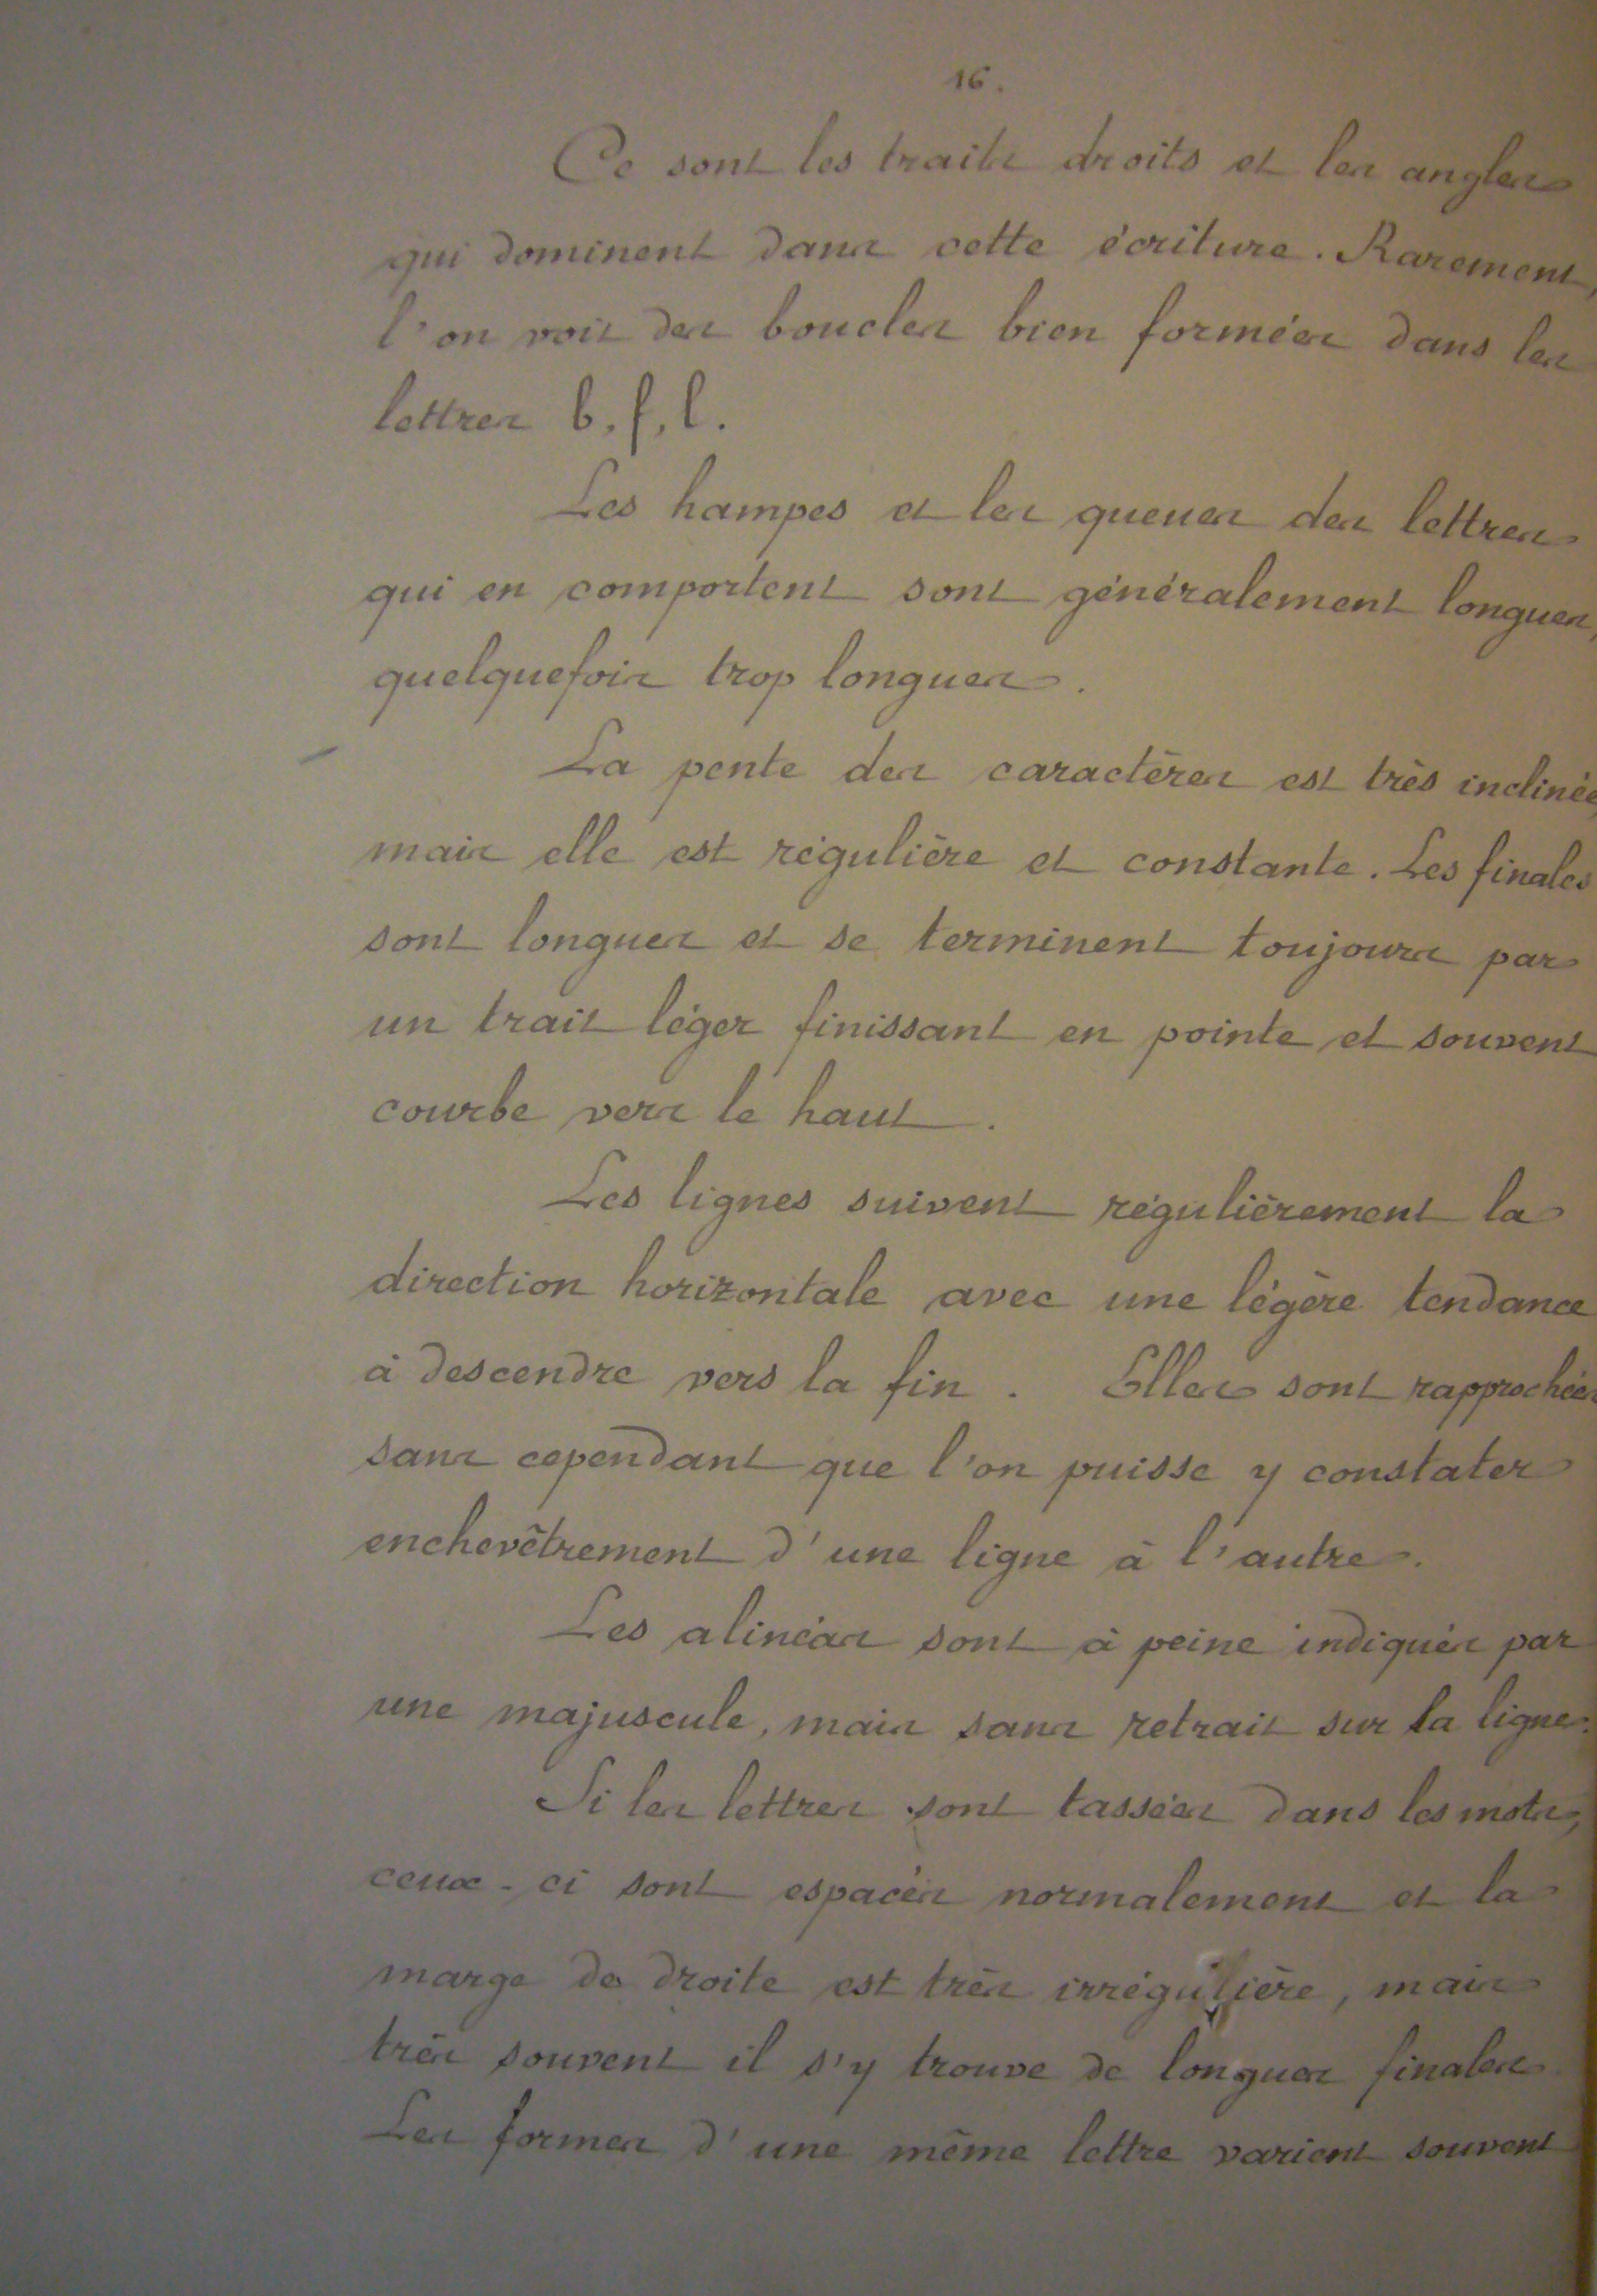 16.
Ce sont les traits droits et les angles
qui dominent dans cette écriture. Rarement,
l'on voit des boucles bien formées dans les
lettres b, f, l.
Les hampes et les queues des lettres
qui en comportent sont généralement longues,
quelquefois trop longues.
La pente des caractères est très inclinée,
mais elle est régulière et constante. Les finales
sont longues et se terminent toujours par
un trait léger finissant en pointe et souvent
courbe vers le haut.
Les lignes suivent régulièrement la
direction horizontale avec une légère tendance
à descendre vers la fin. Elles sont rapprochées
sans cependant que l'on puisse y constater
enchevêtrement d'une ligne à l'autre.
Les alinéas sont à peine indiqués par
une majuscule, mais sans retrait sur la ligne.
Si les lettres sont tassées dans les mots,
ceux-ci sont espacés normalement et la
marge de droite est très irrégulière, mais
très souvent il s'y trouve de longues finales
Les formes d'une même lettre varient souvent